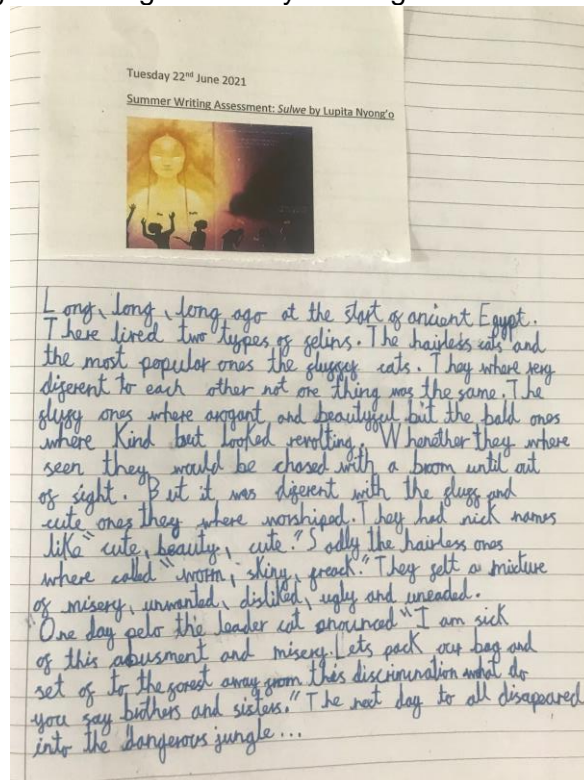 Tuesday 22nd June 2021
Summer Writing Assessment: Sulwe by Lupita Nyong'o
Long, long, long ago at the start of ancient Egypt.
There lived two types of felins. The hairless cats and
the most popular ones the fluffey cats. They where very
diferent to each other not one thing was the same. The
flufy ones where arogant and beautyful but the bald ones
where Kind but looked revolting. Whenether they where
seen they would be chased with a broom until out
of sight. But it was diferent with the fluff and
cute ones they where worshiped. They had nick names
like "cute, beauty, cute." Sadly the hairless ones
where called "worm, skiny, freack." They felt a mixture
of misery, unwanted, disliked, ugly and uneaded.
One day pelo the leader cat anounced "I am sick
of this abusment and misery. Lets pack our bag and
set of to the forest away from this discrimination what do
you say brothers and sisters." The next day to all disapeared
into the dangerous jungle...